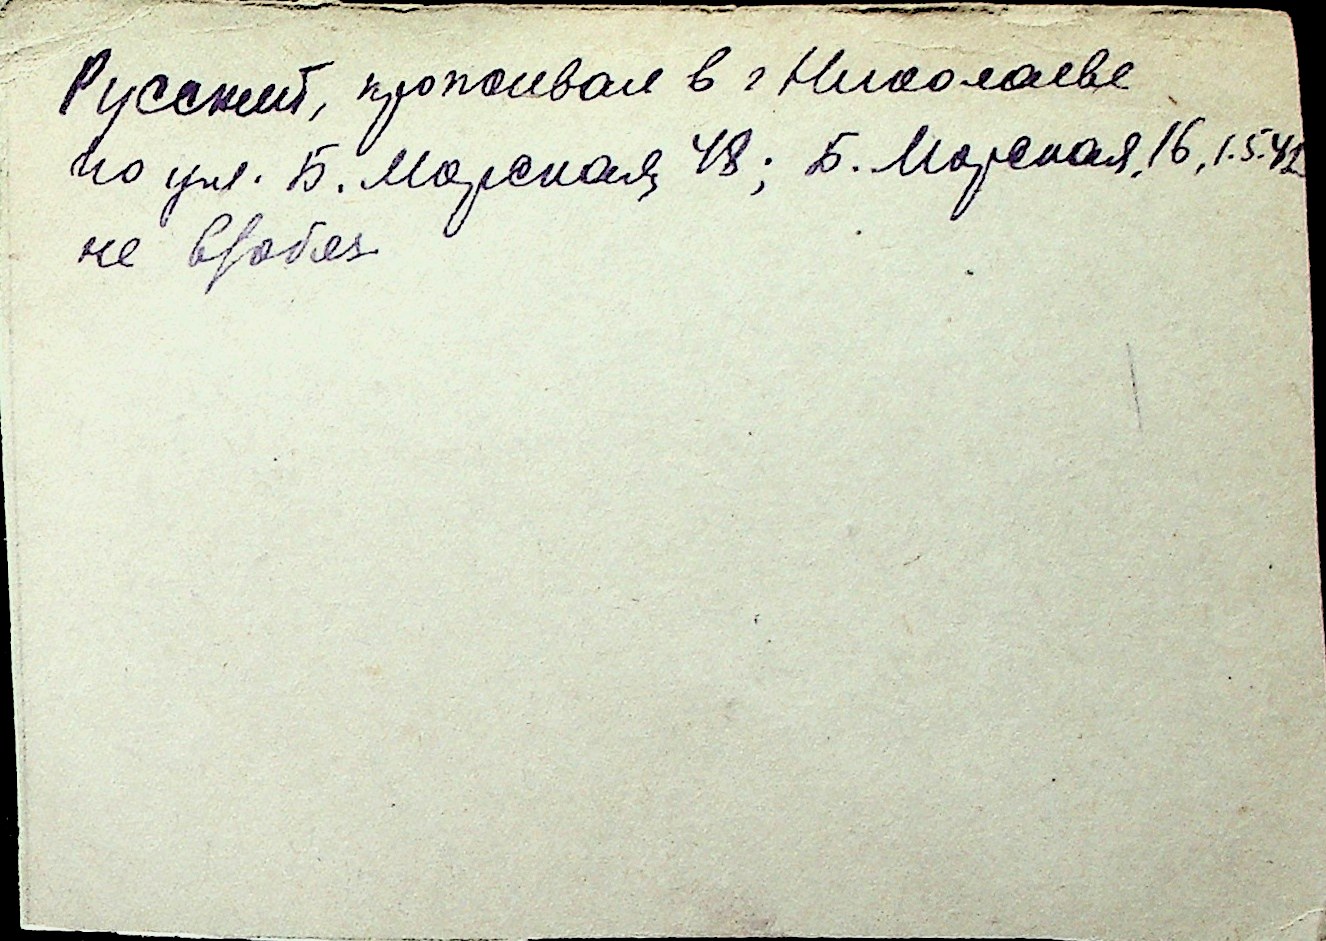 Русский, проживал в г Николаеве
по ул. Б. Морская, 48; Б. Морская, 16, 1.5.42
не